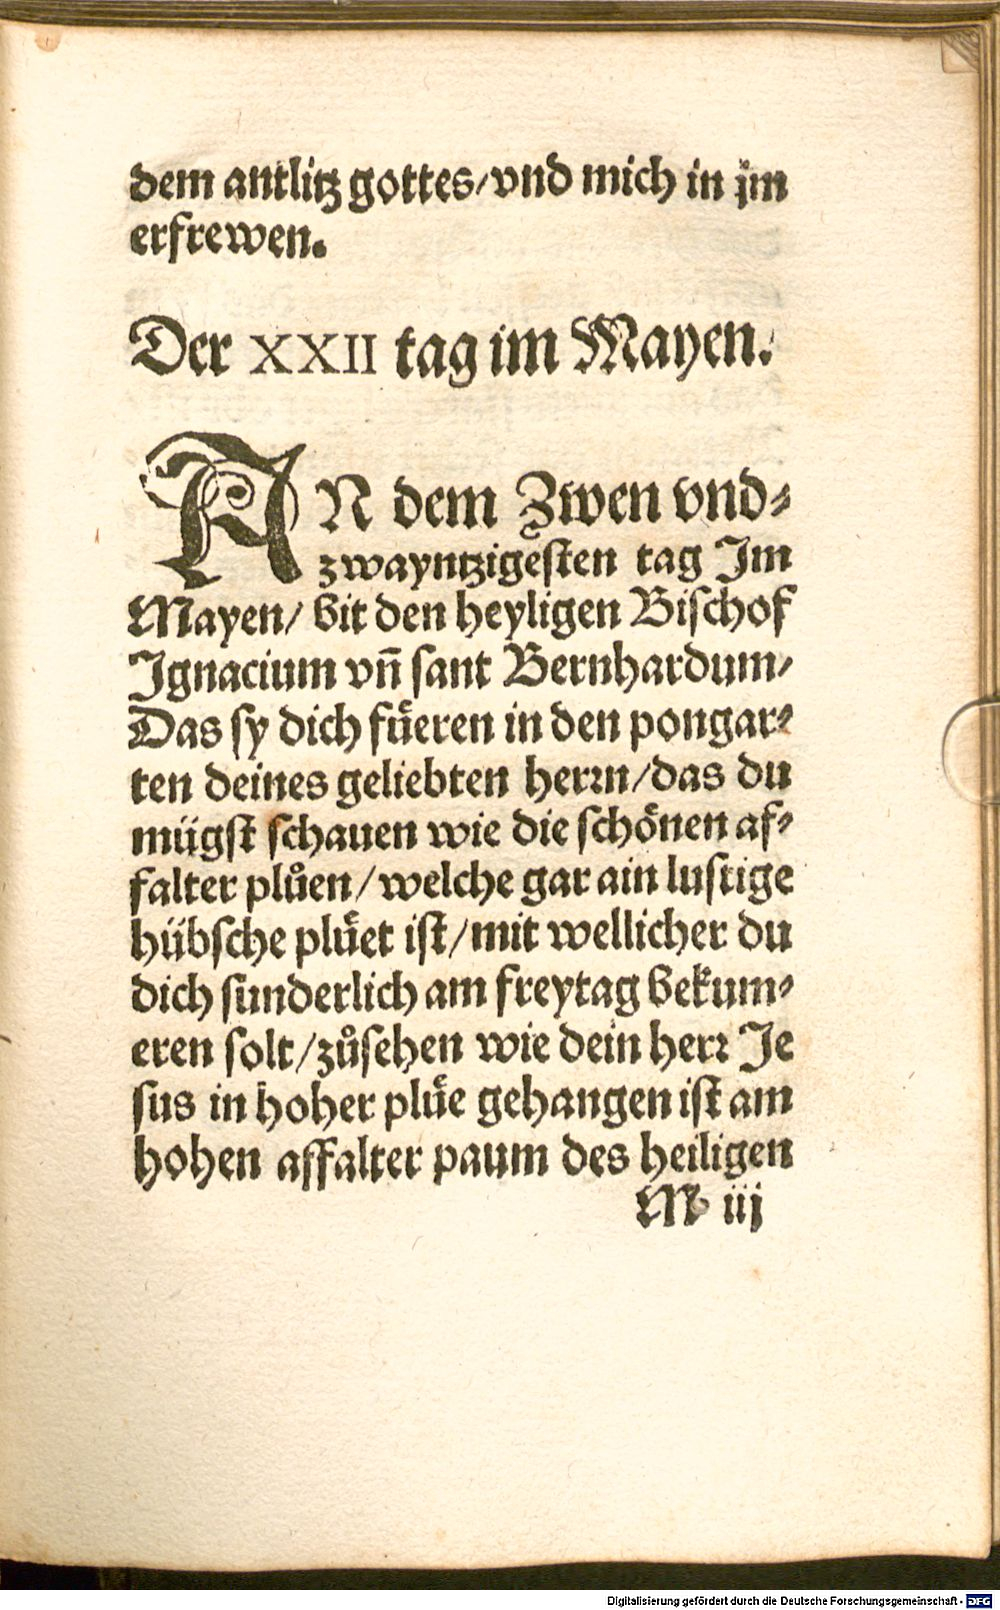 dem antlitz gottes/vnd mich in jm
erfrewen.
Der XXII tag im Mayen.
AN dem Zwen vnd⸗
zwayntzigesten tag Im
Mayen/ bit den heyligen Bischof
Ignacium vn̄ sant Bernhardum/
Das sy dich fuͤeren in den pongar⸗
ten deines geliebten herrn/das du
mügst schauen wie die schoͤnen af⸗
falter pluͦen/welche gar ain lustige
hübsche pluͤet ist/mit wellicher du
dich sunderlich am freytag bekum⸗
eren solt/zuͦsehen wie dein herr Je
sus in hoher pluͤe gehangen ist am
hohen affalter paum des heiligen
M iij
Digitalisierung gefördert durch die Deutsche Forschungsgemeinschaft - DFG